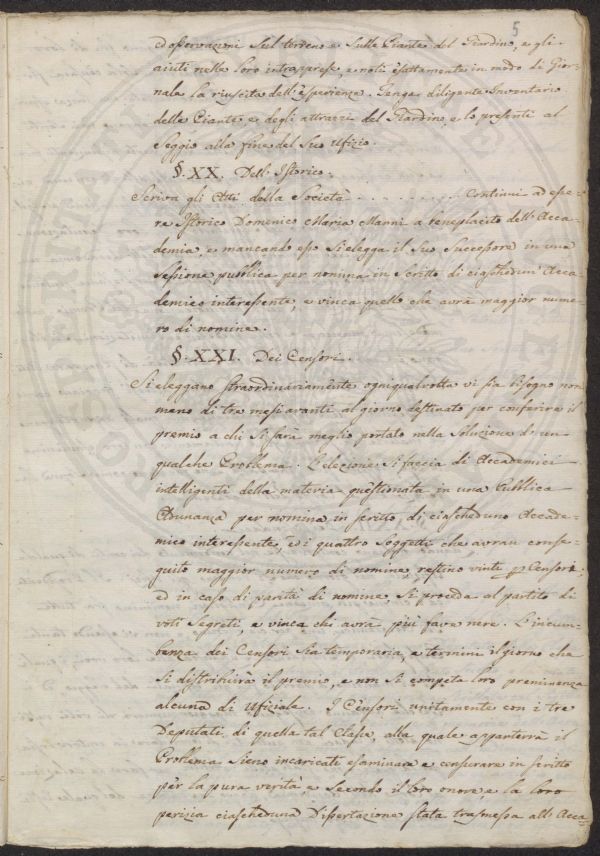 5
ed osservazioni sul terreno e sulle Piante del Giardino, e gli
aiuti nelle loro intraprese, e noti esattamente in modo di Gior-
nale la riuscita dell'esperienze. Tenga diligente Inventario
delle Piante e degli attrazzi del Giardino, e lo presenti al
Seggio alla fine del suo Ufizio.
§. XX. Dell'Istorico.
Scriva gli Atti della Società . . . . . . . . . Continui ad esse-
re Istorico Domenico Maria Manni a beneplacito dell'Acca-
demia, e mancando esso si elegga il suo Successore in una
sessione pubblica per nomina in scritto di ciaschedun Acca-
demico interessente, e vinca quello che avrà maggior nume-
ro di nomine.
§. XXI. Dei Censori.
Si eleggano straordinariamente ogniqualvolta vi sia bisogno non
meno di tre mesi avanti al giorno destinato per conferire il
premio a chi si sarà meglio portato nella soluzione di un
qualche Problema. L'elezione si faccia di Accademici
intelligenti della materia questionata in una Pubblica
Adunanza per nomina in scritto di ciascheduno Accade-
mico interessente, e i quattro Soggetti che avran conse-
guito maggior numero di nomine, restino vinti p Censori,
ed in caso di parità di nomine, si proceda al partito di
voti segreti, e vinca chi avrà più fave nere. L'incum-
benza dei Censori sia temporaria, e termini il giorno che
si distribuirà il premio, e non si competa loro preminenza
alcuna di Ufiziale. I Censori unitamente con i tre
Deputati di quella tal Classe, alla quale apparterrà il
Problema sieno incaricati esaminare e censurare in scritto
per la pura verità, e secondo il loro onore, e la loro
perizia ciascheduna Dissertazione stata trasmessa all'Acca-